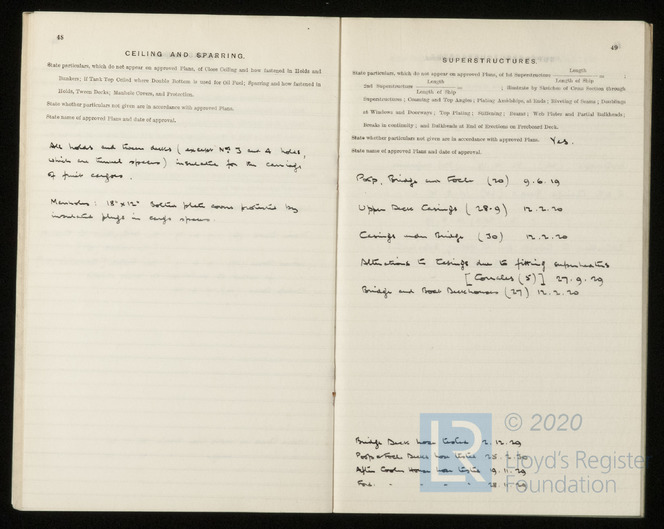 48
CEILING AND SPARRING.
State particulars, which do not appear on approved Plans, of Close Ceiling and how fastened in Holds and
Bunkers; if Tank Top Ceiled where Double Bottom is used for Oil Fuel; Sparring and how fastened in
Holds, Tween Decks; Manhole Covers, and Protection.
State whether particulars not given are in accordance with approved Plans.
State name of approved Plans and date of approval.
All holds and tween decks (except Nº 3 and 4 holds,
which are tunnel spaces) insulated for the carriage
of fruit cargoes.
Manholes: 18" x 12" bolted plate covers protected by
insulated plugs in cargo spaces.
49
SUPERSTRUCTURES.
State particulars, which do not appear on approved Plans, of 1st Superstructure Length / Length of Ship = ;
2nd Superstructure Length / Length of Ship ; illustrate by Sketches of Cross Section through
Superstructures; Coaming and Top Angles; Plating Amidships, at Ends; Riveting of Seams; Doublings
at Windows and Doorways; Top Plating; Stiffening; Beams; Web Plates and Partial Bulkheads;
Breaks in continuity; and Bulkheads at End of Erections on Freeboard Deck.
State whether particulars not given are in accordance with approved Plans. Yes.
State name of approved Plans and date of approval.
Poop, Bridge and Focle (20) 9.6.19
Upper Deck Casings (28-9) 12.2.20
Casings under Bridge (30) 12.2.20
Alterations to Casings due to fitting superheaters
(5)] 27.9.29
Bridge and Boat Deckhouses (27) 12.2.20
Bridge Deck hose tested 2.12.29
Poop & Focle Decks hose tested 25.2.30
After hose tested 19.11.29
Ford. " " "
© 2020
LR
Lloyd's Register
Foundation